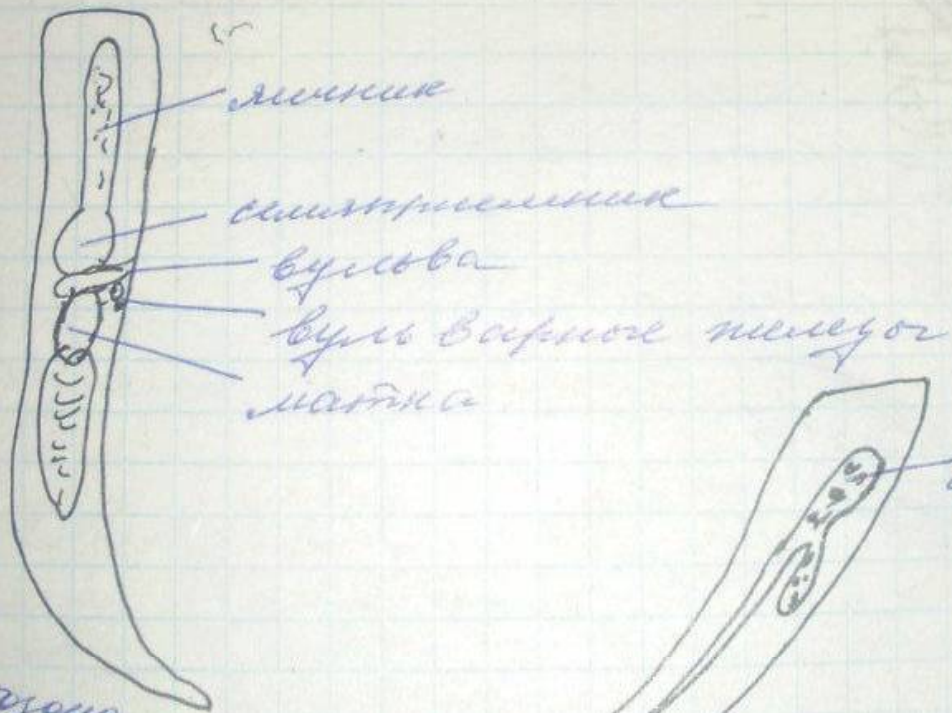 яичник
семяприемник
вульва
вульварные железы
матка